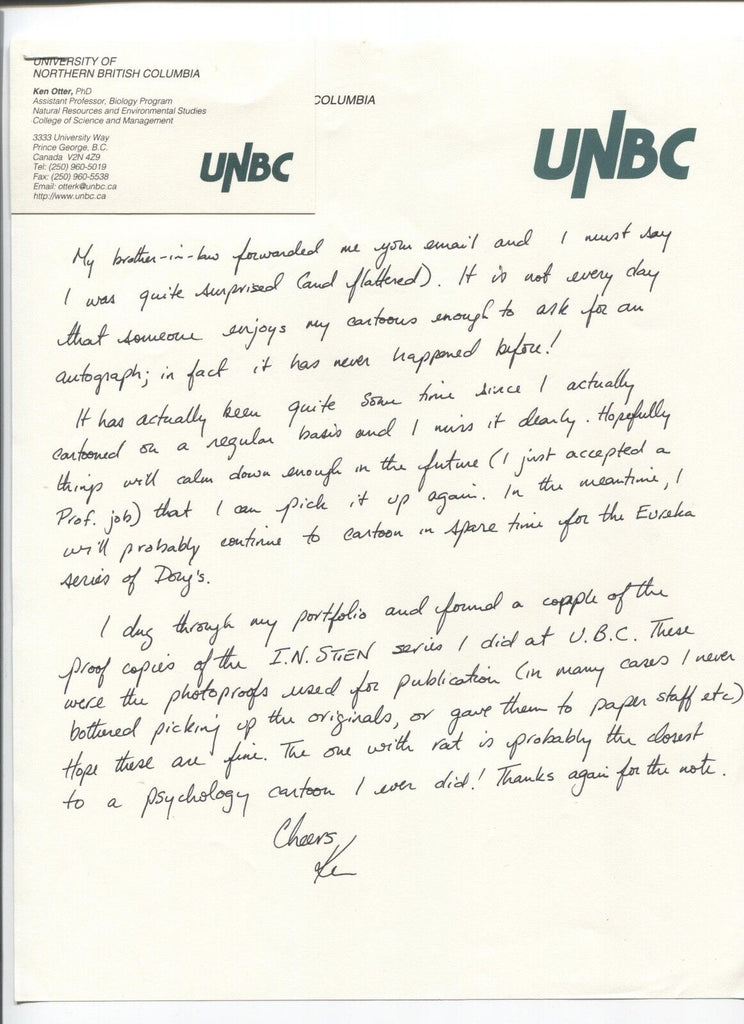 UNIVERSITY OF
NORTHERN BRITISH COLUMBIA
Ken Otter, PhD
Assistant Professor, Biology Program
Natural Resources and Environmental Studies
College of Science and Management
3333 University Way
Prince George, B.C.
Canada V2N 4Z9
Tel: (250) 960-5019
Fax: (250) 960-5538
Email: otterk@unbc.ca
http://www.unbc.ca
UNBC
COLUMBIA
UNBC
My brother-in-law forwarded me your email and I must say
I was quite surprised (and flattered). It is not every day
that someone enjoys my cartoons enough to ask for an
autograph; in fact it has never happened before!
It has actually been quite some time since I actually
cartooned on a regular basis and I miss it dearly. Hopefully
things will calm down enough in the future (I just accepted a
Prof. job) that I can pick it up again. In the meantime, I
will probably continue to cartoon in spare time for the Eureka
series of Doug's.
I dug through my portfolio and found a couple of the
proof copies of the I.N. STIEN series I did at U.B.C. These
were the photoproofs used for publication (in many cases I never
bothered picking up the originals, or gave them to paper staff etc)
Hope these are fine. The one with rat is probably the closest
to a psychology cartoon I ever did! Thanks again for the note.
Cheers
Ken